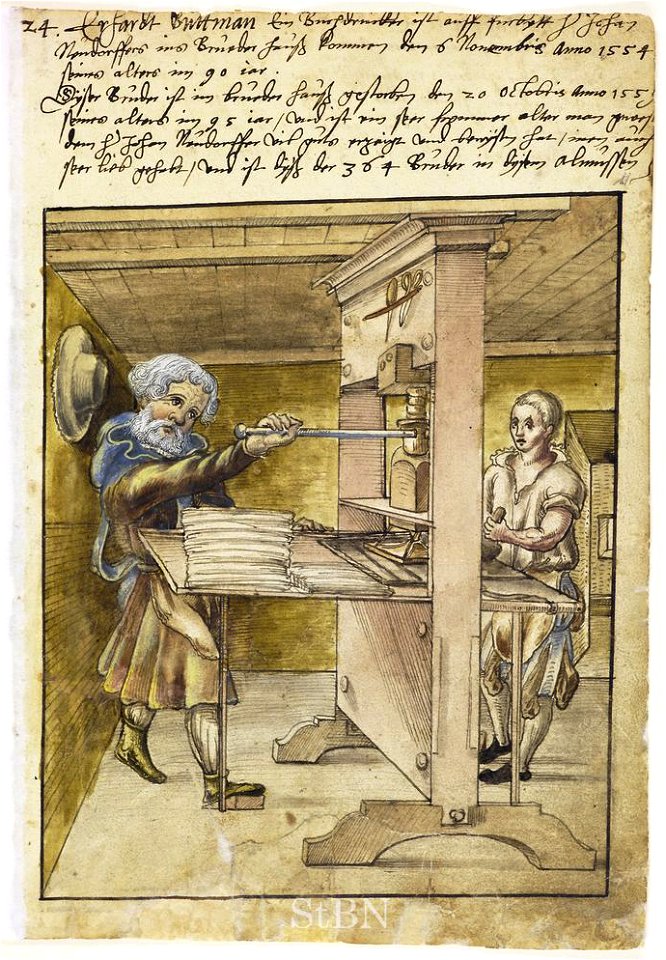 24. Erhardt Buttman Ein Buchdrucker ist auff furbytt H Johan
Neudorffers ins Brueder hauß kommen den 6 Novembris Anno 1554
seines alters im 90 iar.
Dyser Bruder ist im brueder hauß gestorben den 20 Octobris Anno 155
seines alters im 95 iar / und ist ein seer frommer alter man
dem H Johan Neudorffer vil guts erzeigt und bewysen hat /
seer lieb gehabt / und ist dyß der 364 Bruder in dysem Almussen
StBN